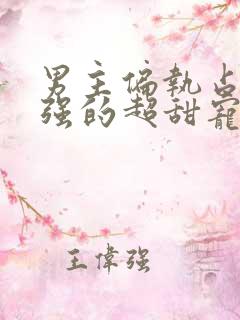 男主偏執占
强的超甜寵
王偉强